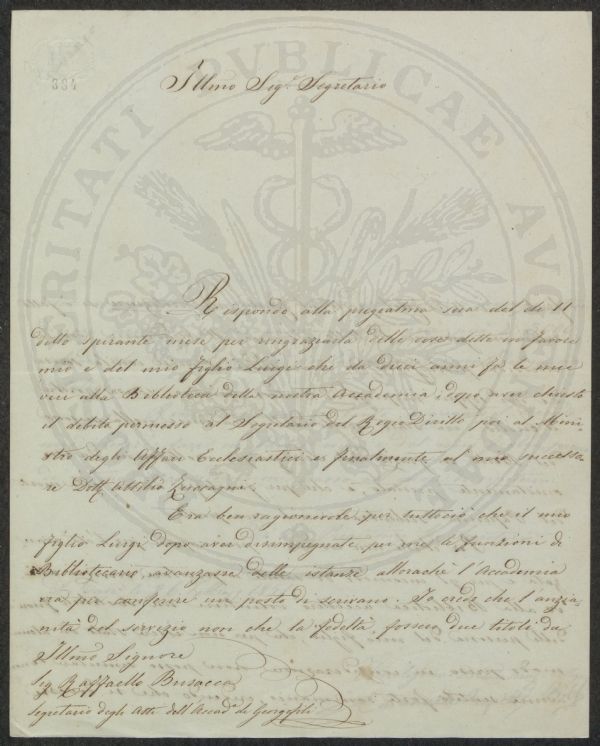 334
Illmo Sig.r Segretario
PROSPERITATI PVBLICAE AVGENDAE
Rispondo alla pregiatma sua del dì 11
dello spirante mese per ringraziarla delle cose dette in favore
mio e del mio figlio Luigi che da dieci anni fa le mie
veci alla Biblioteca della nostra Accademia, dopo aver chiesto
il debito permesso al Segretario del Regio Diritto poi al Mini
stro degli Affari Ecclesiastici e finalmente al mio successo
re Dott. Attilio Zuccagni.
Era ben ragionevole per tuttociò che il mio
figlio Luigi dopo aver disimpegnate per me le funzioni di
Bibliotecario, avanzasse delle istanze allorachè l'Accademia
era per conferire un posto di scrivano. Io credo che l'anzia
nità del servizio non che la fedeltà, fossero due titoli da
Illmo Signore
Sig. Raffaello Busacca
Segretario degli Atti dell'Accad.a de Georgofili